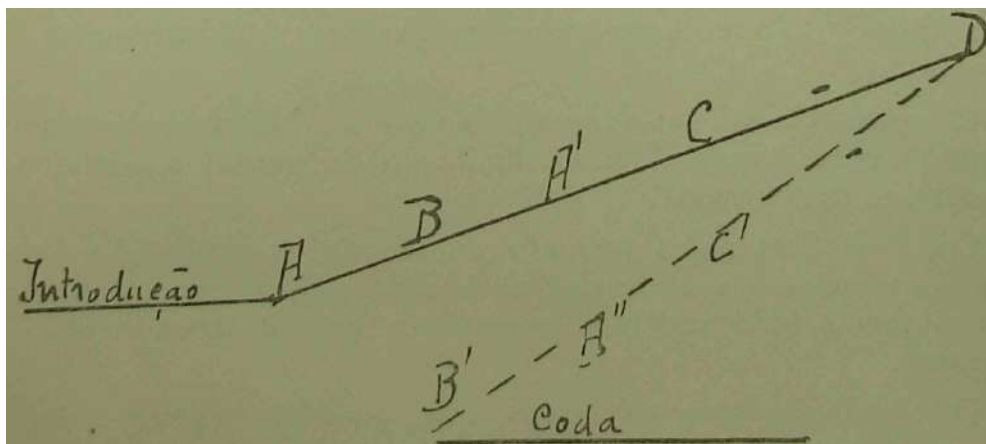 Introdução
A
B
A'
C
D
C'
A"
B'
Coda